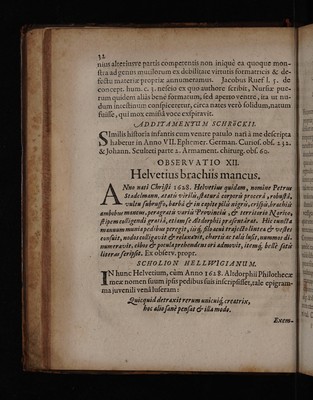 32
nius alterutrve partis competentis non iniquè ea quoque mon-
stra ad genus mutilorum ex debilitate virtutis formatricis & de-
fectu materiæ propriæ annumeramus. Jacobus Ruef l. 5. de
concept. hum. c. 3. nescio ex quo authore scribit, Nursiæ pue-
rum quidem aliàs benè formatum, sed aperso ventre, ita ut nu-
dum intestinum conspiceretur, circa nates verò solidum, natum
fuisse, qui mox emissâ voce exspiravit.
ADDITAMENTUM SCHRÖCKII.
SImilis historia infantis cum ventre patulo nati à me descripta
habetur in Anno VII. Ephemer. German. Curios. obs. 232.
& Johann. Sculteti parte 2. Armament. chirurg. obs. 60.
OBSERVATIO XII.
Helvetius brachiis mancus.
ANno nati Christi 1628. Helvetius quidam, nomine Petrus
Stadelmann, ætatis virilis, staturâ corporis procerâ, robustâ,
vultu subruffo, barbâ & in capite pilis nigris, crispis, brachiis
ambobus mancus, peragratis variis Provinciis, & territorio Norico,
stipem colligendi gratiâ, etiam se Altdorphii præsentârat. Hic cuncta
manuum munia pedibus peregit, isis, fila acui trajecit o lintea & vestes
consuit, nodos colligavit & relaxavit, chartis ac talis lusit, nummos di-
numeravit, cibos & pocula prehendens ori admovit, itemq, bellè satis
literas scripsit. Ex observ. propr.
SCHOLION HELLWIGIANUM.
IN hunc Helvetium, cùm Anno 1628. Altdorphii Philothecæ
meæ nomen suum ipsis pedibus suis inscripsisset, tale epigram-
ma juvenili venâ luseram:
Quicquid detraxit rerum unicuiq, creatrix,
hoc alio sanè pensat & illa modo.
Exem-